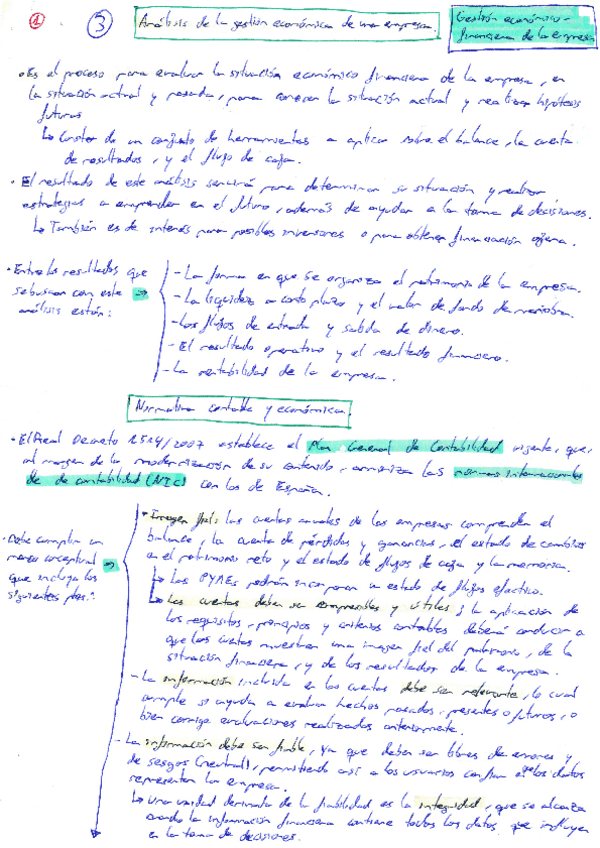 1 3 Análisis de la gestión económica de una empresa. Gestión económico-
financiera de la empresa
• Es el proceso para evaluar la situación económico financiera de la empresa, en
la situación actual y pasada, para conocer la situación actual y realizar hipótesis
futuras
↳ Consta de un conjunto de herramientas a aplicar sobre el balance, la cuenta
de resultados, y el flujo de caja.
• El resultado de este análisis servirá para determinar su situación y realizar
estrategias a emprender en el futuro, además de ayudar a la toma de decisiones.
↳ También es de interés para posibles inversores o para obtener financiación ajena.
• Entre los resultados que
se buscan con este ⇒
análisis están:
- La forma en que se organiza el patrimonio de la empresa.
- La liquidez a corto plazo y el valor de fondo de maniobra.
- Los flujos de entrada y salida de dinero.
- El resultado operativo y el resultado financiero.
- La rentabilidad de la empresa.
Normativa contable y económica.
• El Real Decreto 1514/2007 establece el Plan General de Contabilidad vigente, que,
al margen de la modernización de su contenido, armoniza las normas internacionales
de de contabilidad (NIC) con las de España.
• Debe cumplir un
marco conceptual ⇒
que incluya los
siguientes ptos.:
• Imagen fiel: las cuentas anuales de las empresas comprenden el
balance, la cuenta de pérdidas y ganancias, el estado de cambios
en el patrimonio neto y el estado de flujos de caja y la memoria.
↳ Las PYMEs podrán incorporar un estado de flujos efectivo.
↳ Las cuentas deben ser comprensibles y útiles; la aplicación de
los requisitos, principios y criterios contables deberá conducir a
que las cuentas muestren una imagen fiel del patrimonio, de la
situación financiera, y de los resultados de la empresa.
- La información incluida en las cuentas debe ser relevante, lo cual
cumple si ayuda a evaluar hechos pasados, presentes o futuros, o
bien corrige evaluaciones realizadas anteriormente.
- La información debe ser fiable, ya que deben ser libres de errores y
de sesgos (neutral), permitiendo así a los usuarios confiar en los datos
representen la empresa.
↳ Una cualidad derivada de la fiabilidad es la integridad, que se alcanza
cuando la información financiera contiene todos los datos que influyen
en la toma de decisiones.